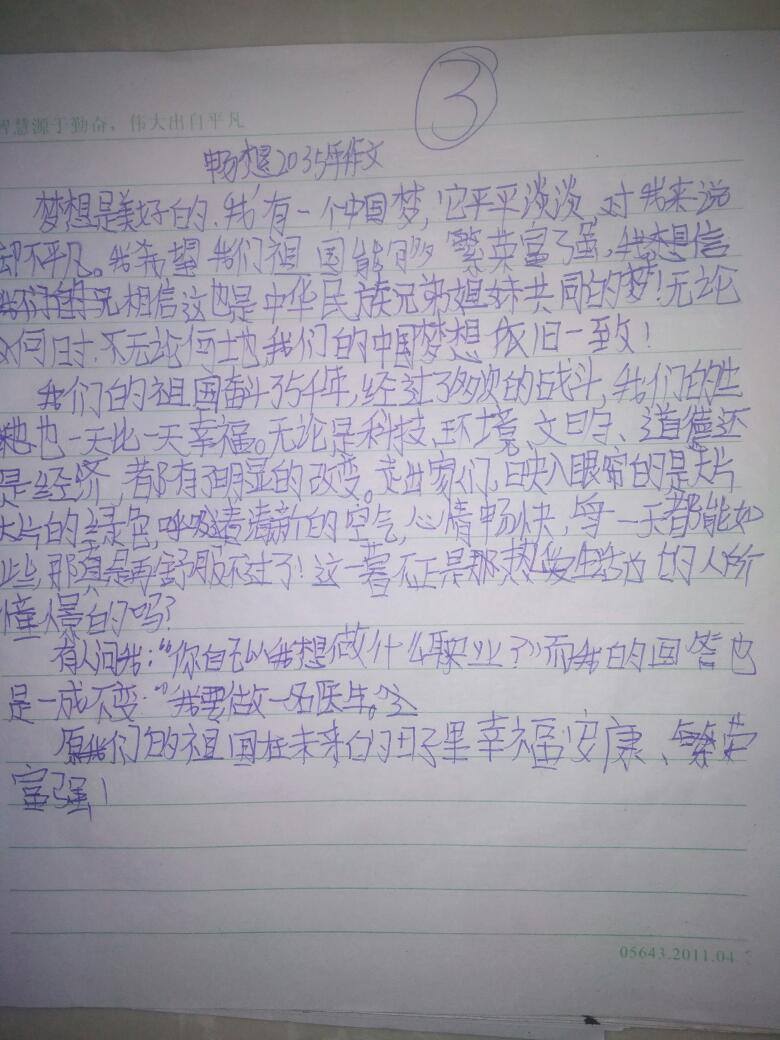 ③
智慧源于勤奋，伟大出自平凡
畅想2035年作文
梦想是美好的,我有一个中国梦,它平平淡淡,对我来说
却不平凡。我希望我们祖国能 繁荣富强,我想信
相信这也是中华民族兄弟姐妹共同的梦!无论
何时,不无论何地,我们的中国梦想依旧一致!
我们的祖国奋斗了5千年,经过了多次的战斗,我们的生
也一天比一天幸福。无论是科技、环境、文明、道德还
是经济,都有了明显的改变。走出家们,映入眼帘的是大片
大片的绿色,呼吸着清新的空气,心情畅快,每一天都能如
些,那真是再舒服不过了!这一暮不正是那热发生活的人所
憧憬的吗?
有人问我:“你自己 想做什么职业?”而我的回答也
是一成不变:“我要做一名医生。”
原我们的祖国在未来的日子里幸福安康、繁荣
富强!
05643.2011.04